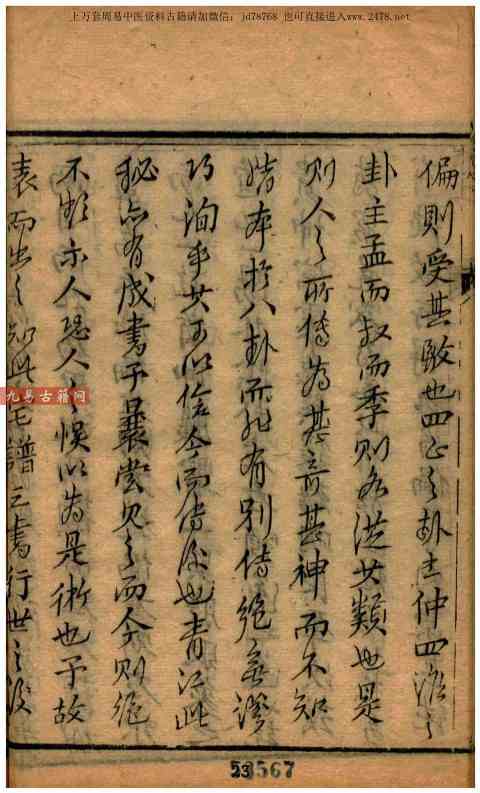 上万套周易中医资料古籍请加微信：jd78768 也可直接进入www.2478.net
偏则受其敺也四正之卦主仲四維之
卦主孟而叔而季則各從其類也是
則人之所傳為甚奇甚神而不知
皆本於八卦而非有別傳絕無謬
巧洵乎其可以信今而傳後也青江此
秘亦有成書予曩嘗見之而今則絕
不 示人恐人之悞以為是術也予故
表而出之知此宅譜之書行世之後
九易古籍网
23567